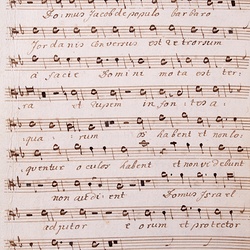 Domus Jacob de populo barbaro
Jordanis conversus est retrorsum
a facie Domini mota est ter,
ra et rupem in fontes a,
qua, rum os habent et non lo,
quentur oculos habent et non videbunt
non audient Domus Israel
adjutor eorum et protector